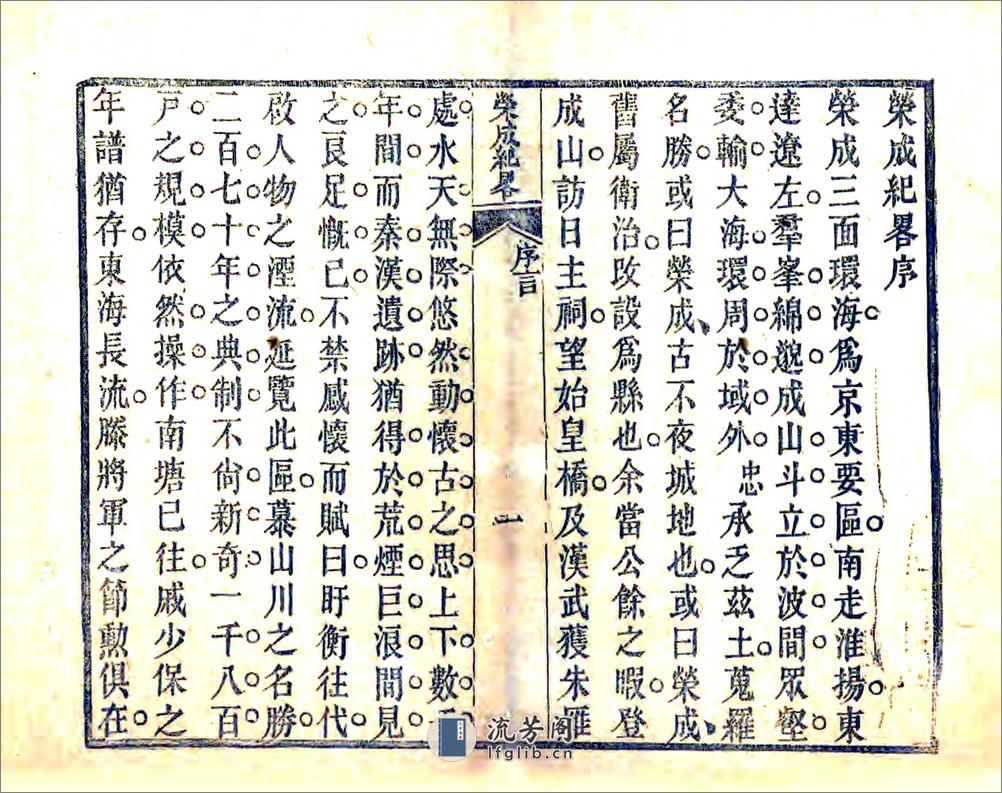 榮成紀畧序
榮成三面環海爲京東要區南走淮揚東
達遼左羣峯綿邈成山斗立於波間眾壑
委輸大海環周於域外忠承乏茲土蒐羅
名勝或曰榮成古不夜城地也或曰榮成
舊屬衛治改設爲縣也余當公餘之暇登
成山訪日主祠望始皇橋及漢武獲朱雁
榮成紀畧
序言
一
處水天無際悠然動懷古之思上下數千
年間而秦漢遺跡猶得於荒煙巨浪間見
之良足慨已不禁感懷而賦曰盱衡往代
啟人物之湮流延覽此區慕山川之名勝
二百七十年之典制不尙新奇一千八百
戸之規模依然操作南塘已往戚少保之
年譜猶存東海長流滕將軍之節勲俱在
流芳阁
lfglib.cn